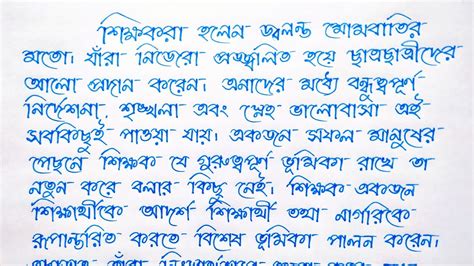 শিক্ষকরা হলেন জ্বলন্ত মোমবাতির
মতো। যাঁরা নিজেরা প্রজ্জ্বলিত হয়ে ছাত্রছাত্রীদের
আলো প্রদান করেন। এনাদের মধ্যে বন্ধুত্বপূর্ণ
নির্দেশনা, শৃঙ্খলা এবং স্নেহ ভালোবাসা এই
সবকিছুই পাওয়া যায়। একজন সফল মানুষের
পেছনে শিক্ষক যে গুরুত্বপূর্ণ ভূমিকা রাখে তা
নতুন করে বলার কিছু নেই। শিক্ষক একজন
শিক্ষার্থীকে আদর্শ শিক্ষার্থী তথা নাগরিকে
রূপান্তরিত করতে বিশেষ ভূমিকা পালন করেন।